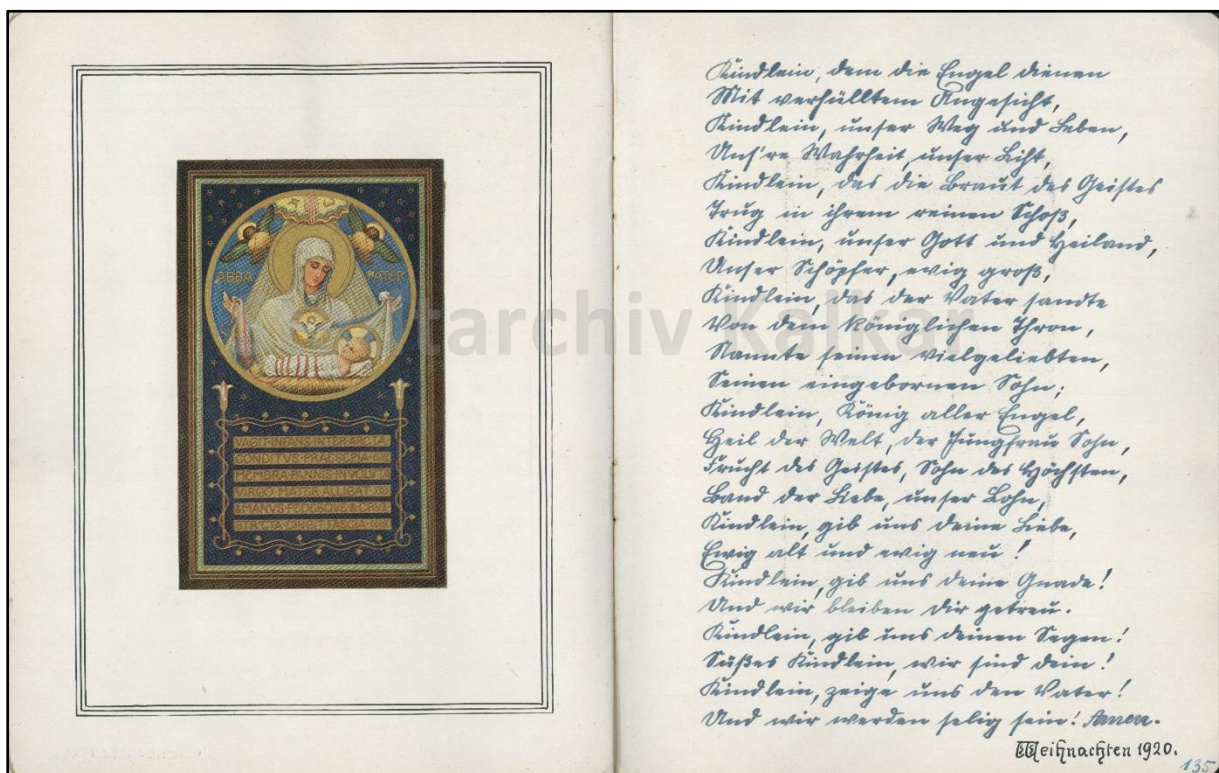 ABBA PATER
VAGIT INFANS INTER ARCTA
CONDITVS PRAESEPIA
MEMBRA PANNIS INVOLVTA
VIRGO MATER ALLIGAT
& MANVS PEDESQVE & CRVRA
STRICTA CINGIT FASCIA
Kindlein, dem die Engel dienen
Mit verhülltem Angesicht,
Kindlein, unser Weg und Leben,
Uns're Wahrheit, unser Licht,
Kindlein, das die Braut des Geistes
Trug in ihrem reinen Schoß,
Kindlein, unser Gott und Heiland,
Unser Schöpfer, ewig groß,
Kindlein, das der Vater sandte
Von dem königlichen Thron,
Nannte seinen vielgeliebten,
Seinen eingebornen Sohn;
Kindlein, König aller Engel,
Heil der Welt, der Jungfrau Sohn,
Frucht des Geistes, Sohn des Höchsten,
Band der Liebe, unser Lohn,
Kindlein, gib uns deine Liebe,
Ewig alt und ewig neu!
Kindlein, gib uns deine Gnade!
Und wir bleiben dir getreu.
Kindlein, gib uns deinen Segen!
Süßes Kindlein, wir sind dein!
Kindlein, zeige uns den Vater!
Und wir werden selig sein! Amen.
Weihnachten 1920.
135
tarchiv Kalkar